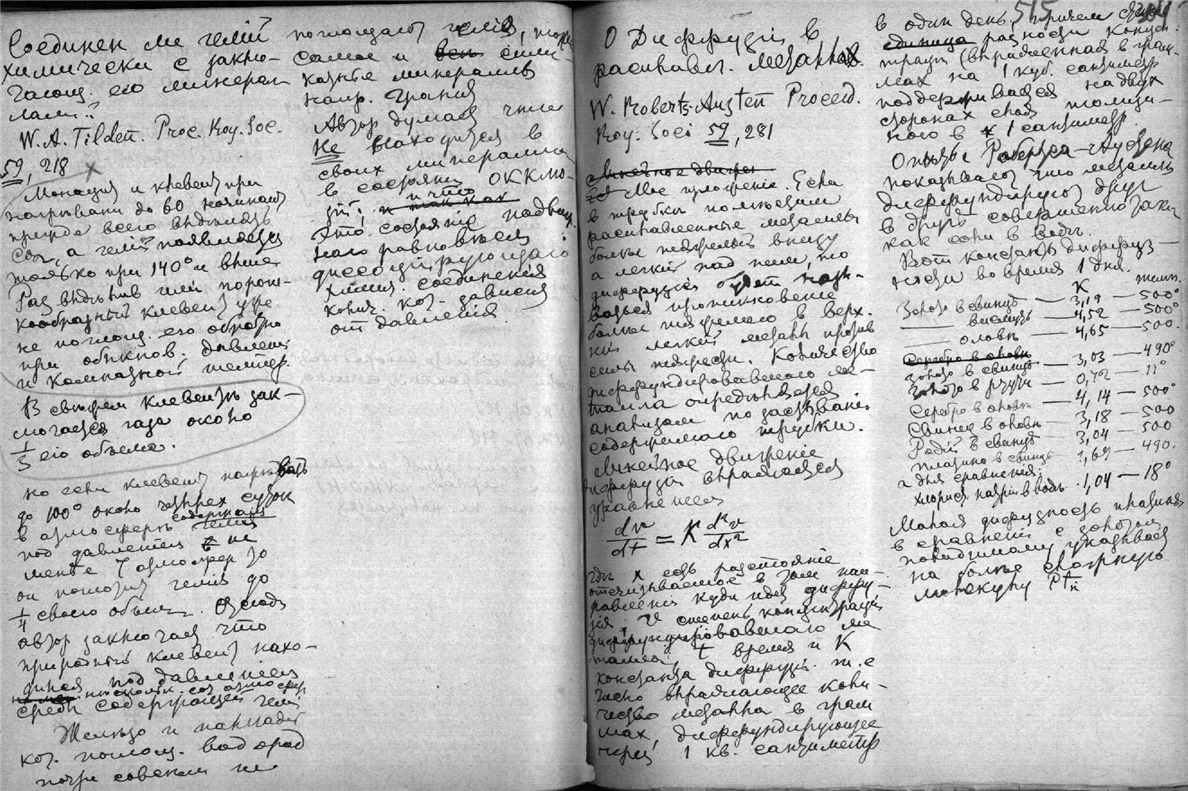 Соединен ли гелий
химически с заклю-
чающ. его минера-
лами?
W. A. Tilden. Proc. Roy. Soc.
59, 218
Монацит и клевеит при
нагревании до 60 начинают
прежде всего выделять
CO2, а гелий появляется
только при 140° и выше
Раз выделив гелий порош-
кообразный клевеит уже
не поглощ. его обратно
при обыкнов. давлении
и комнатной темпер.
В свежем клевеите зак-
лючается газа около
1/3 его объема.
но если клевеит нагревать
до 100° около четырех суток
в атмосфере содержащ. гелий
под давлением не
менее 7 атмосфер то
он поглотит гелия до
1/4 своего объема. Отсюда
автор заключает что
природный клевеит нахо-
дился под давлением
среды содержащей гелий
Железо и палладий
кот. поглощ. водород
почти совсем не
поглощают гелия, тоже
самое и
минералы
напр. гранит
Автор думает что гелий
не находится в
своих минералах
в состоянии окклю-
зии. и что
это состояние
равновесия
диссоциирующаго
химич. соединения
кот. зависит
от давления.
О Диффузии в
расплавл. металлах
W. Roberts-Austen Proceed.
Roy. Soci 59, 281
Линейное движен
Мое приложение. Если
в трубки поместим
расплавленные металлы
более тяжелый внизу
а легкий над ним, то
диффузией будет назы-
ваться проникновение
более тяжелого в верх-
ний легкий металл против
силы тяжести. Количество
диффундировавшего ме-
талла определяется
анализом по застывании
содержимого трубки.
Линейное движение
диффузии выражается
уравнением
dv/dt = K d²v/dx²
где x есть расстояние
отсчитываемое в том нап-
равлении куда идет диффу-
зия, v степень концентрации
диффундировавшаго ме-
талла, t время и K
константа диффузии т. е
число выражающее коли-
чество металла в грам
мах диффундирующее
через 1 кв. сантиметр
515
в один день, причем
единица разности концен-
трации (выраженная в грам-
мах на 1 куб. сантиметр
поддерживается на двух
сторонах слоя толщи-
ною в 1 сантиметр.
Опыты Робертса-Аустена
показывают что металлы
диффундируют друг
в друга совершенно так
как соли в воде.
Вот константы диффуз-
ности во время 1 дня.
K темп.
Золото в свинце — 3,19 — 500°
— висмуте — 4,52 — 500°
— олове — 4,65 — 500.
Серебро в олове
Золото в свинце — 3,03 — 490°
Золото в ртути — 0,72 — 11°
Серебро в олове — 4,14 — 500°
Свинец в олове — 3,18 — 500
Родий в свинце — 3,04 — 500
платина в свинце — 1,69 — 490.
а для сравнения:
хлорист. натрий в воде. 1,04 — 18°
Малая диффузность платины
в сравнении с золотом
повидимому указывает
на более сложную
молекулу Ptn